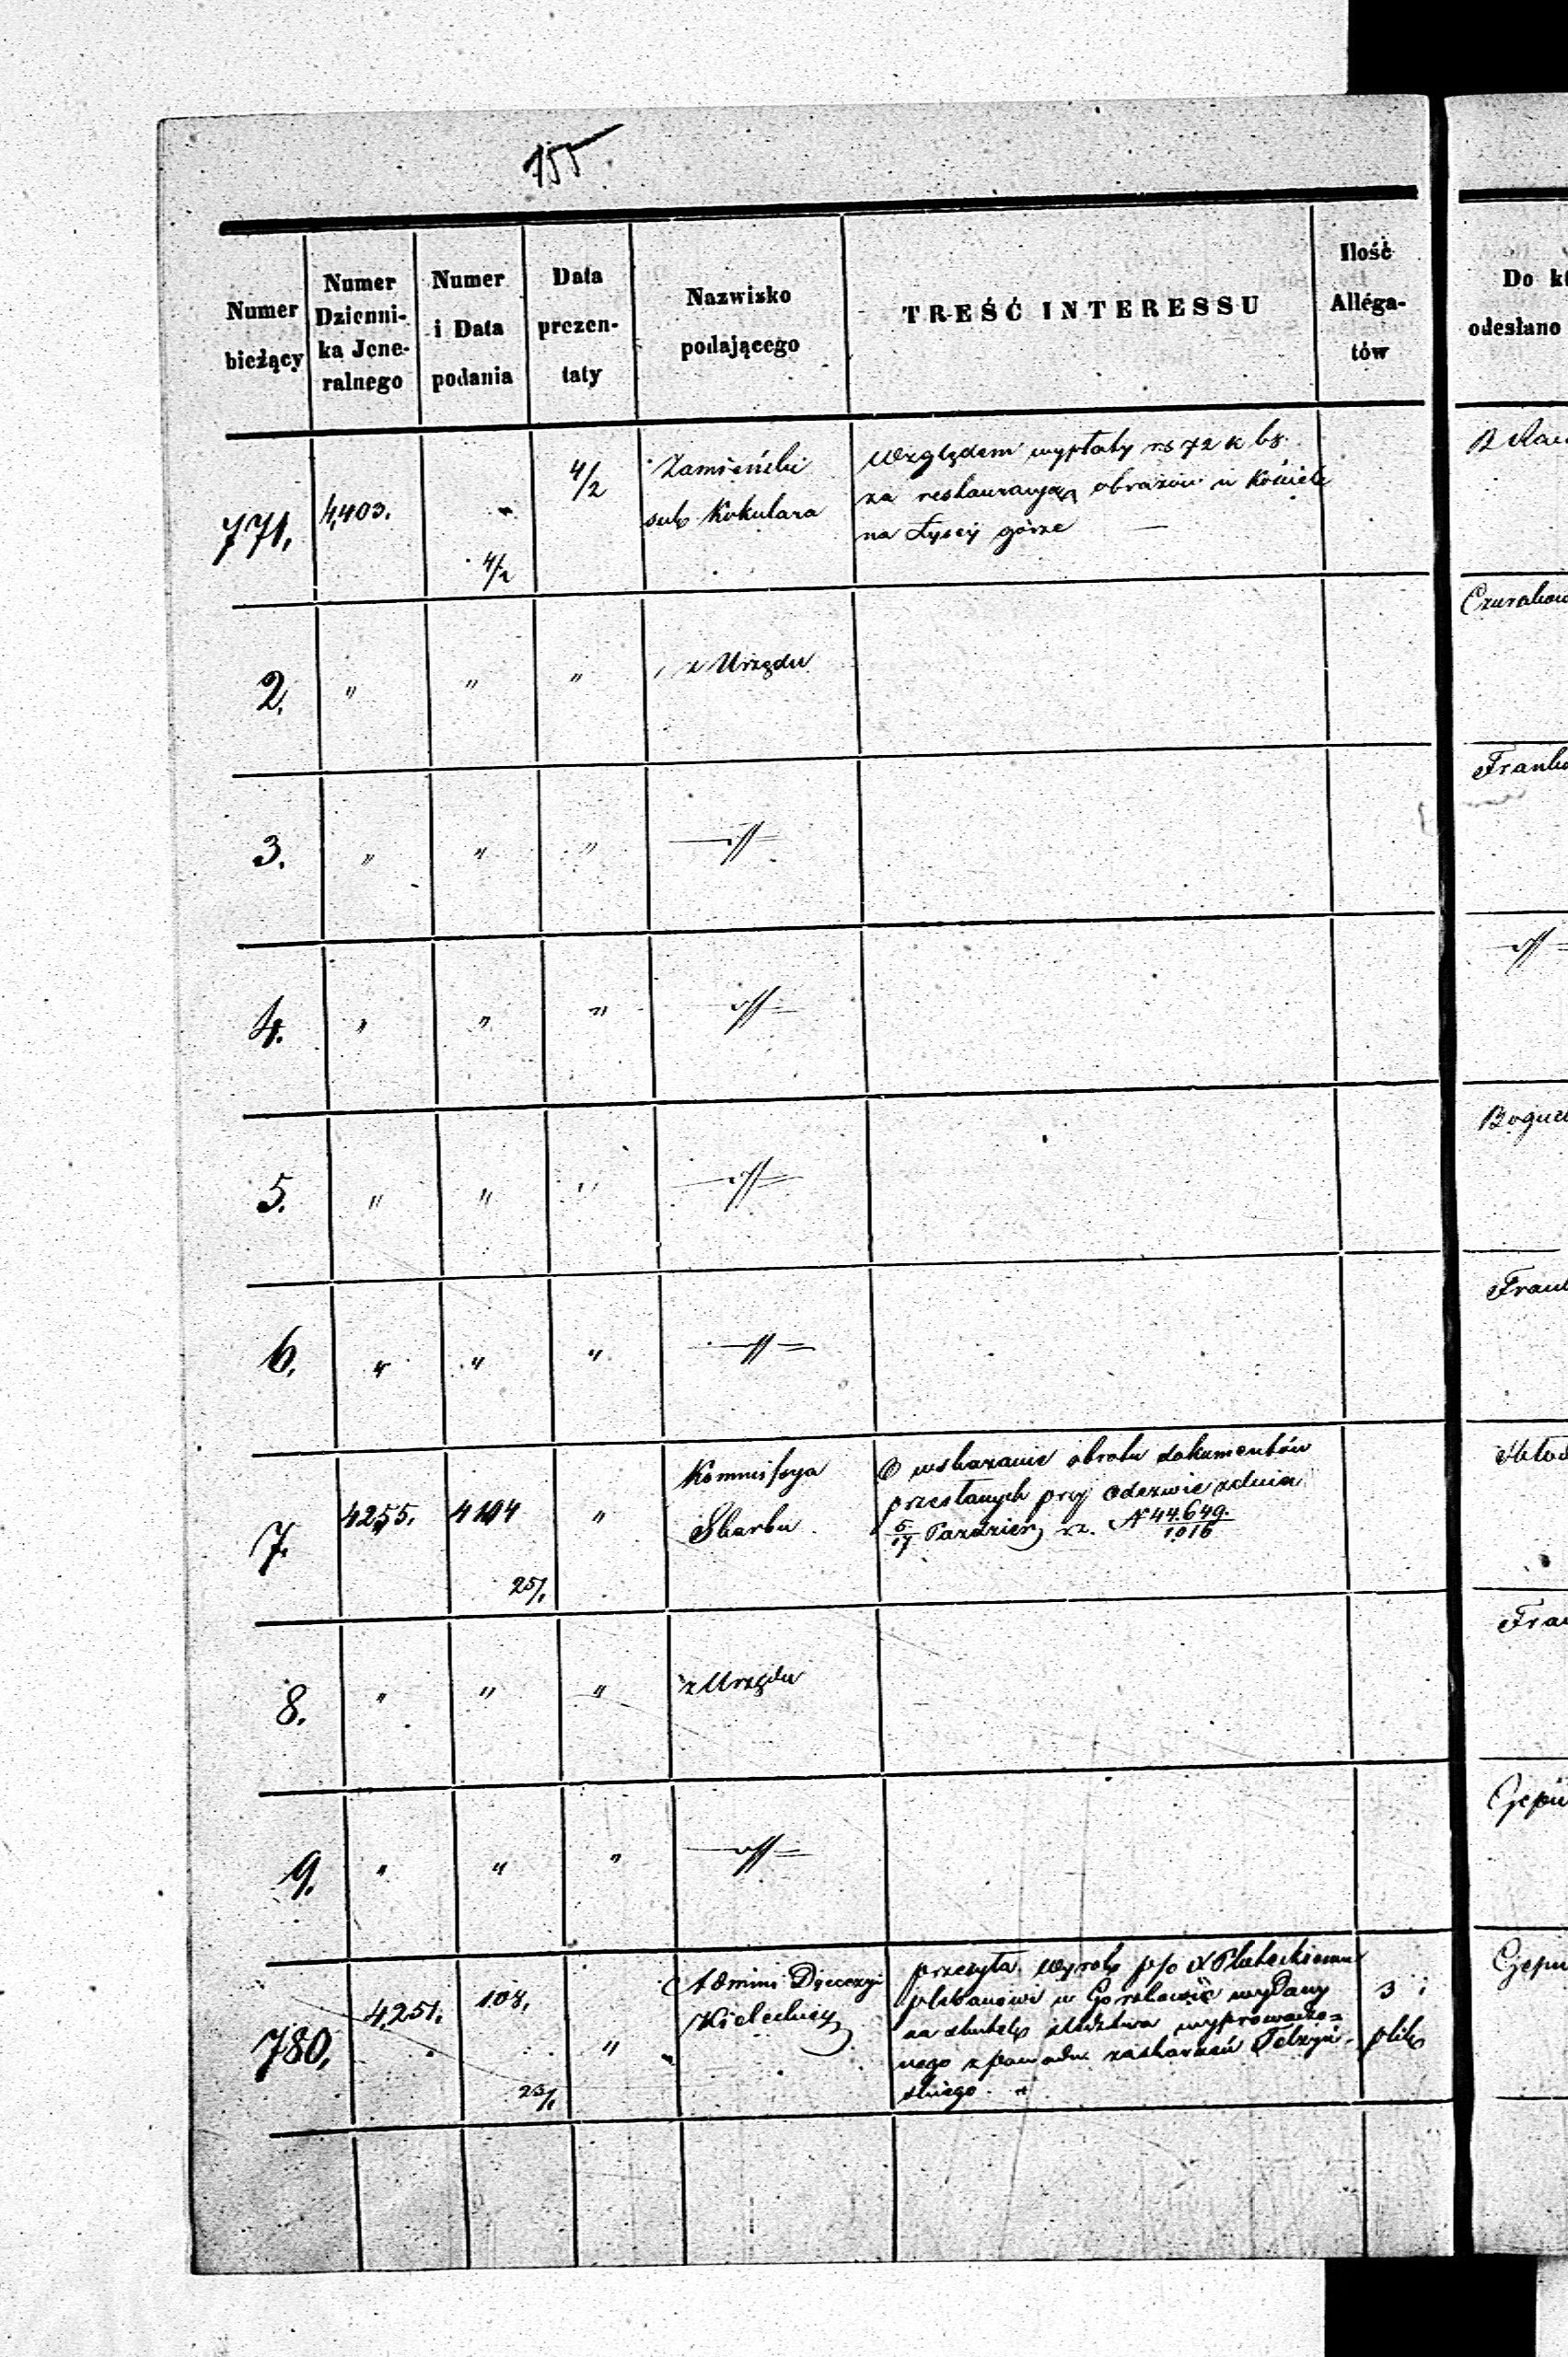 155
Numer bieżący
Numer Dzienni- ka Jene- ralnego
Numer i Data podania
Data prezen- taty
Nazwisko podającego
TREŚĆ INTERESSU
Ilość Alléga- tów
Do
odesłano
771. 4,403. 4/2 4/2
Zamieński
sub Kokulara
Względem wypłaty rs 72 k
za restauracyą obrazów w Kościele
na Łysej górze —
2. " " " z Urzędu
3. " " " —//—
4. " " " —//—
5. " " " —//—
6. " " " —//—
7. 4255. 4194 25/1 "
Kommissya
Skarbu
O wskazanie obrotu dokumentów
przesłanych przy Odezwie z dnia
5/17 Paździer rz. N 44.649./1016
8. " " " z Urzędu
9. " " " —//—
780. 4,251. 108, 23/1 "
Admini Dyecezyi
Kieleckiej
przesyła Wyrok p/o X
plebanowi w wydany
na skutek śledztwa wyprowadzo=
nego z powodu zaskarżeń
skiego
3
plik